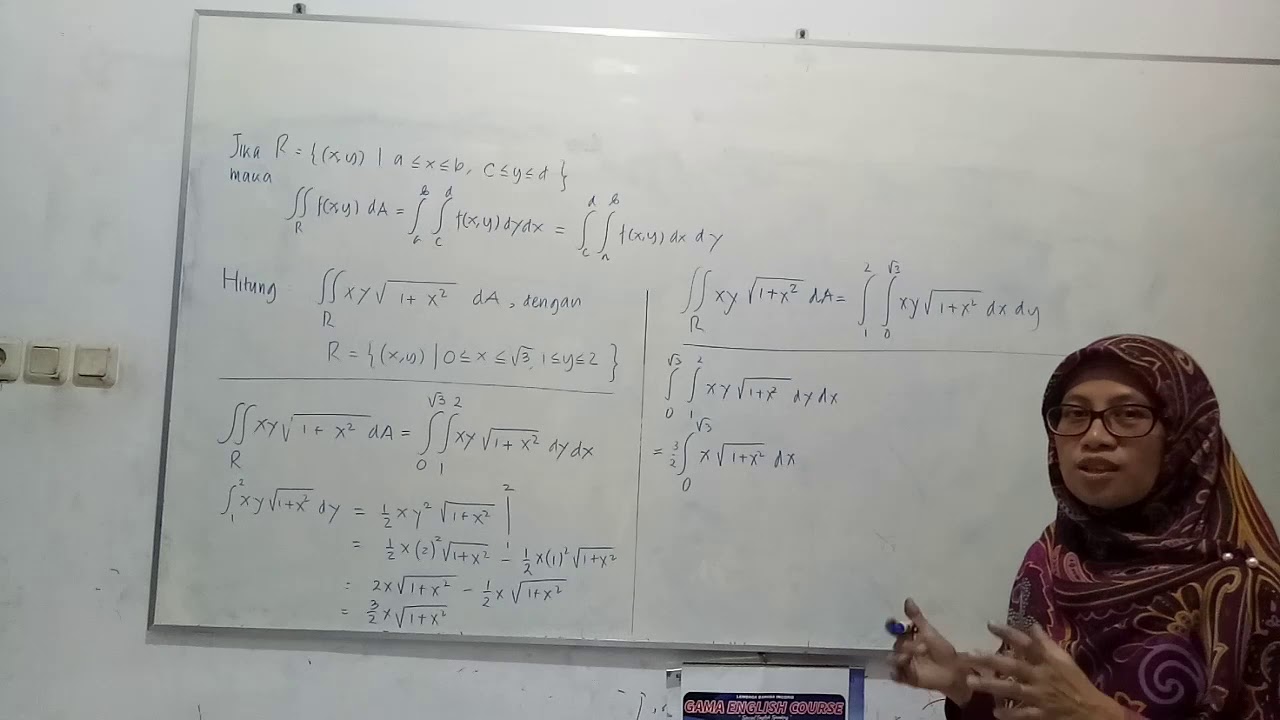 Jika R = {(x,y) | a ≤ x ≤ b, c ≤ y ≤ d}
maka
∬_R f(x,y) dA = ∫_a^b ∫_c^d f(x,y) dy dx = ∫_c^d ∫_a^b f(x,y) dx dy
Hitung ∬_R xy√(1 + x²) dA, dengan
R = {(x,y) | 0 ≤ x ≤ √3, 1 ≤ y ≤ 2}
∬_R xy√(1 + x²) dA = ∫_0^√3 ∫_1^2 xy√(1 + x²) dy dx
∫_1^2 xy√(1+x²) dy = ½xy²√(1+x²) |_1^2
= ½x(2)²√(1+x²) − ½x(1)²√(1+x²)
= 2x√(1+x²) − ½x√(1+x²)
= 3/2 x√(1+x²)
∬_R xy√(1+x²) dA = ∫_1^2 ∫_0^√3 xy√(1+x²) dx dy
∫_0^√3 ∫_1^2 xy√(1+x²) dy dx
= 3/2 ∫_0^√3 x√(1+x²) dx
GAMA ENGLISH COURSE